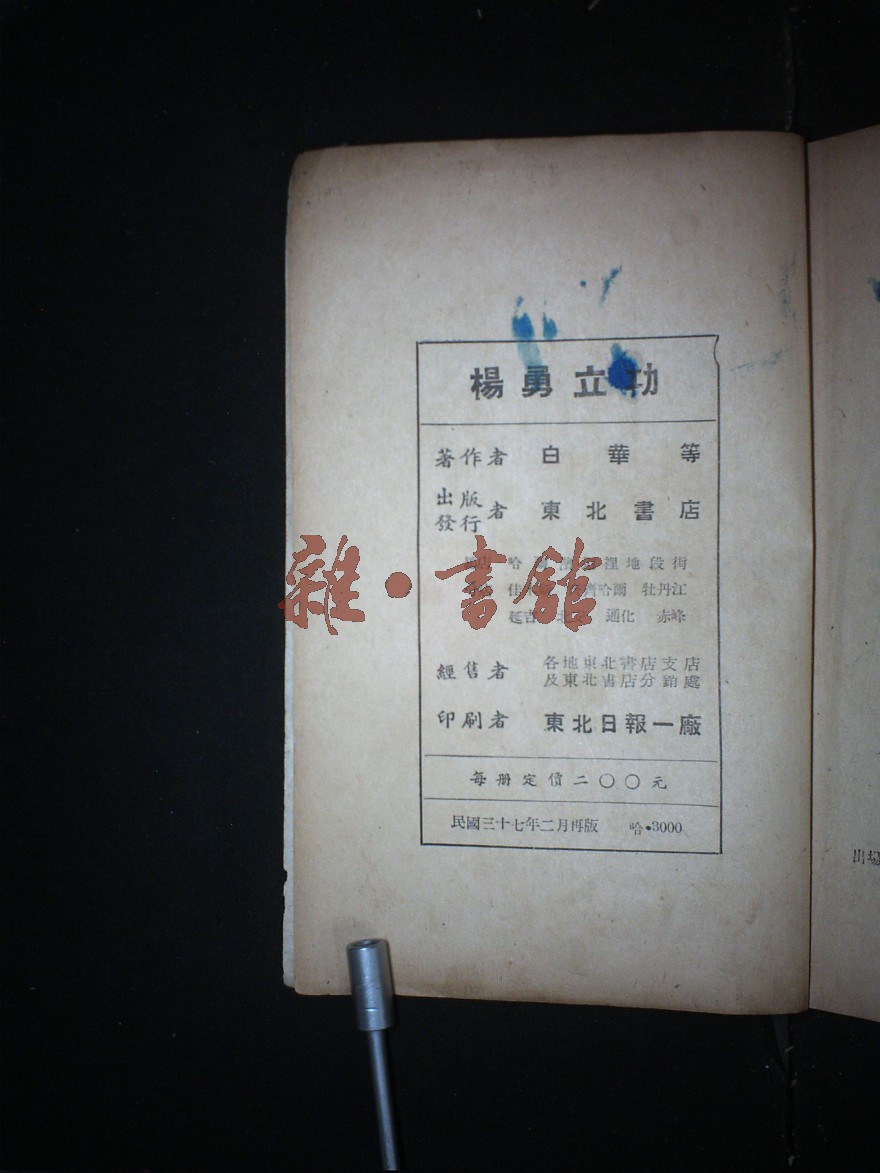 楊勇立功
著作者 白華等
出版發行者 東北書店
哈 裡地段街
佳 齊哈爾 牡丹江
延吉 通化 赤峰
經售者 各地東北書店支店
及東北書店分銷處
印刷者 東北日報一廠
每册定價二〇〇元
民國三十七年二月再版 哈•3000
雜•書館
出場